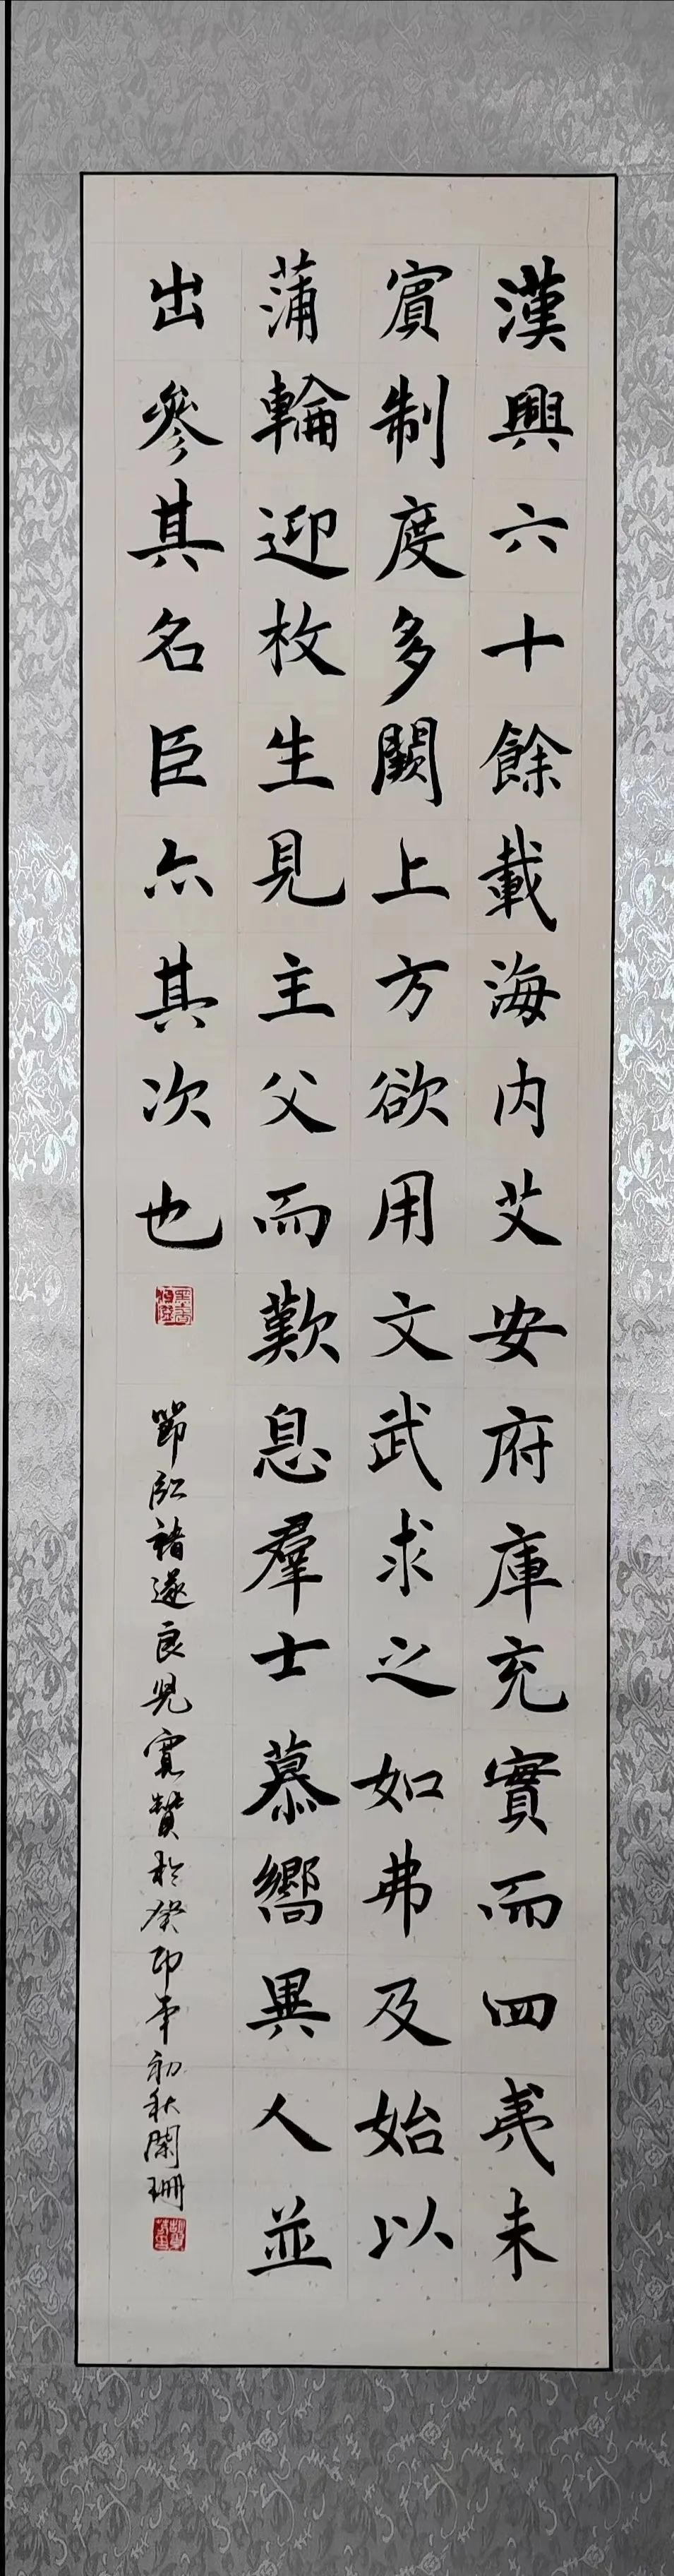 漢興六十餘載海内艾安府庫充實而四夷未
賓制度多闕上方欲用文武求之如弗及始以
蒲輪迎枚生見主父而歎息羣士慕嚮異人並
出參其名臣亦其次也
節臨褚遂良兒寬贊於癸卯年初秋闌珊